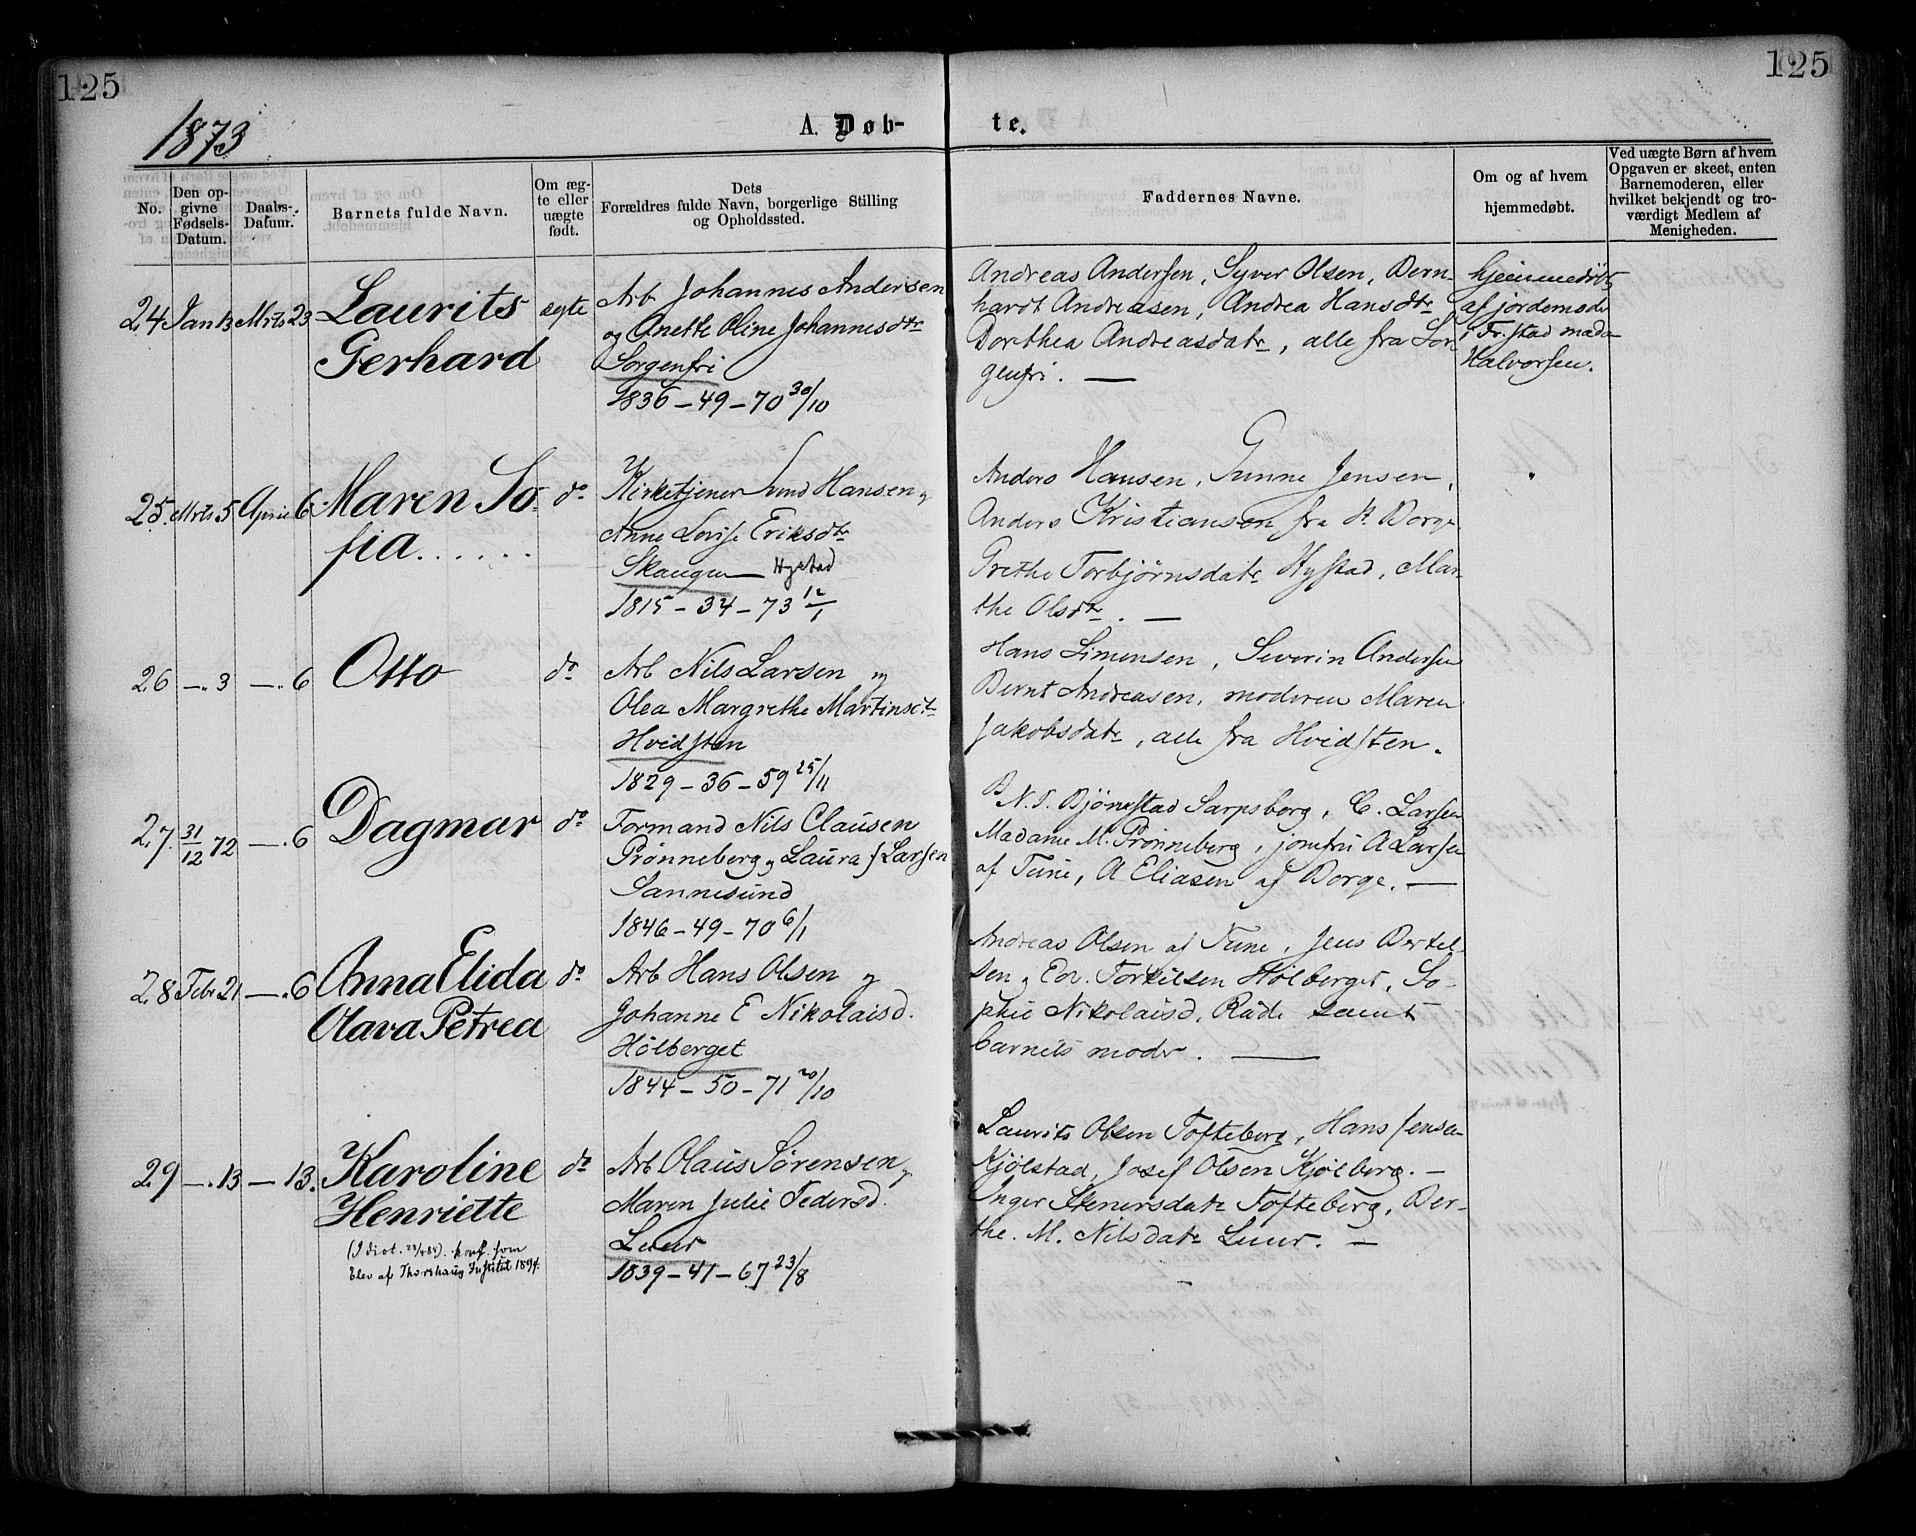 125
125
1873
A. Døb-
te.
No.
Den op-
givne
Fødsels-
Datum.
Daabs-
Datum.
Barnets fulde Navn.
Om æg-
te eller
uægte
født.
Dets
Forældres fulde Navn, borgerlige Stilling
og Opholdssted.
Faddernes Navne.
Om og af hvem
hjemmedøbt.
Ved uægte Børn af hvem
Opgaven er skeet, enten
Barnemoderen, eller
hvilket bekjendt og tro-
værdigt Medlem af
Menigheden.
24 Jan 13 Mrts 23 Laurits ægte
Gerhard
Arb Johannes Andersen
og Anette Oline Johannesdtr
Sorgenfri
1836 - 49 - 70 30/10
Andreas Andersen, Syver Olsen, Bern-
hardt Andreasen, Andrea Hansdtr
Dorthea Andreasdatr, alle fra Sor
genfri. —
hjemmedøbt
af jordemoder
i Fr.stad mada
Halvorsen.
25. Mrts 5 April 6 Maren So- do
fia......
Kirketjener Hansen og
Anne Lovise Eriksdtr
Skaugen Hystad
1815 - 34 - 73 12/1
Anders Hansen, Gunne Jensen,
Anders Kristiansen fra Borge
Grethe Torbjørnsdatr Hystad, Mar-
the Olsdtr. —
26 —. 3 —. 6 Otto do
Arb Nils Larsen og
Olea Margrethe Martinsdtr
Hvidsten
1829 - 36 - 59 25/11
Hans Simensen, Severin Andersen
Bernt Andreasen, moderen Maren
Jakobsdatr, alle fra Hvidsten.
27. 31/12 72 —. 6 Dagmar do
Formand Nils Clausen
Prønneberg og Laura J Larsen
Sannesund
1846 - 49 - 70 6/1
N. T. Bjønestad Sarpsborg, C. Larsen
Madame M. Prønneberg, jomfru A Larsen
af Tune, A Eliasen af Borge. —
28 Febr 21 —. 6 Anna Elida do
Olava Petrea
Arb Hans Olsen og
Johanne E Nikolaisd.
Hølberget
1844 - 50 - 71 20/10
Andreas Olsen af Tune, Jens Bertel-
sen og Edv. Torkilsen Hølberget, So-
phie Nikolaisd. Råde samt
barnets moder. —
29 —. 13 — 13. Karoline do
Henriette
(Idiot. ). konf. som
Elev af Thorshaug Institut 1894.
Arb Olaus Sørensen og
Maren Julie Pedersd.
Luur
1839 - 41 - 67 23/8
Laurits Olsen Tofteberg, Hans Jensen
Kjølstad, Josef Olsen Kjølberg. —
Inger Stenersdatr Tofteberg, Ber-
the. M. Nilsdatr Luur. —